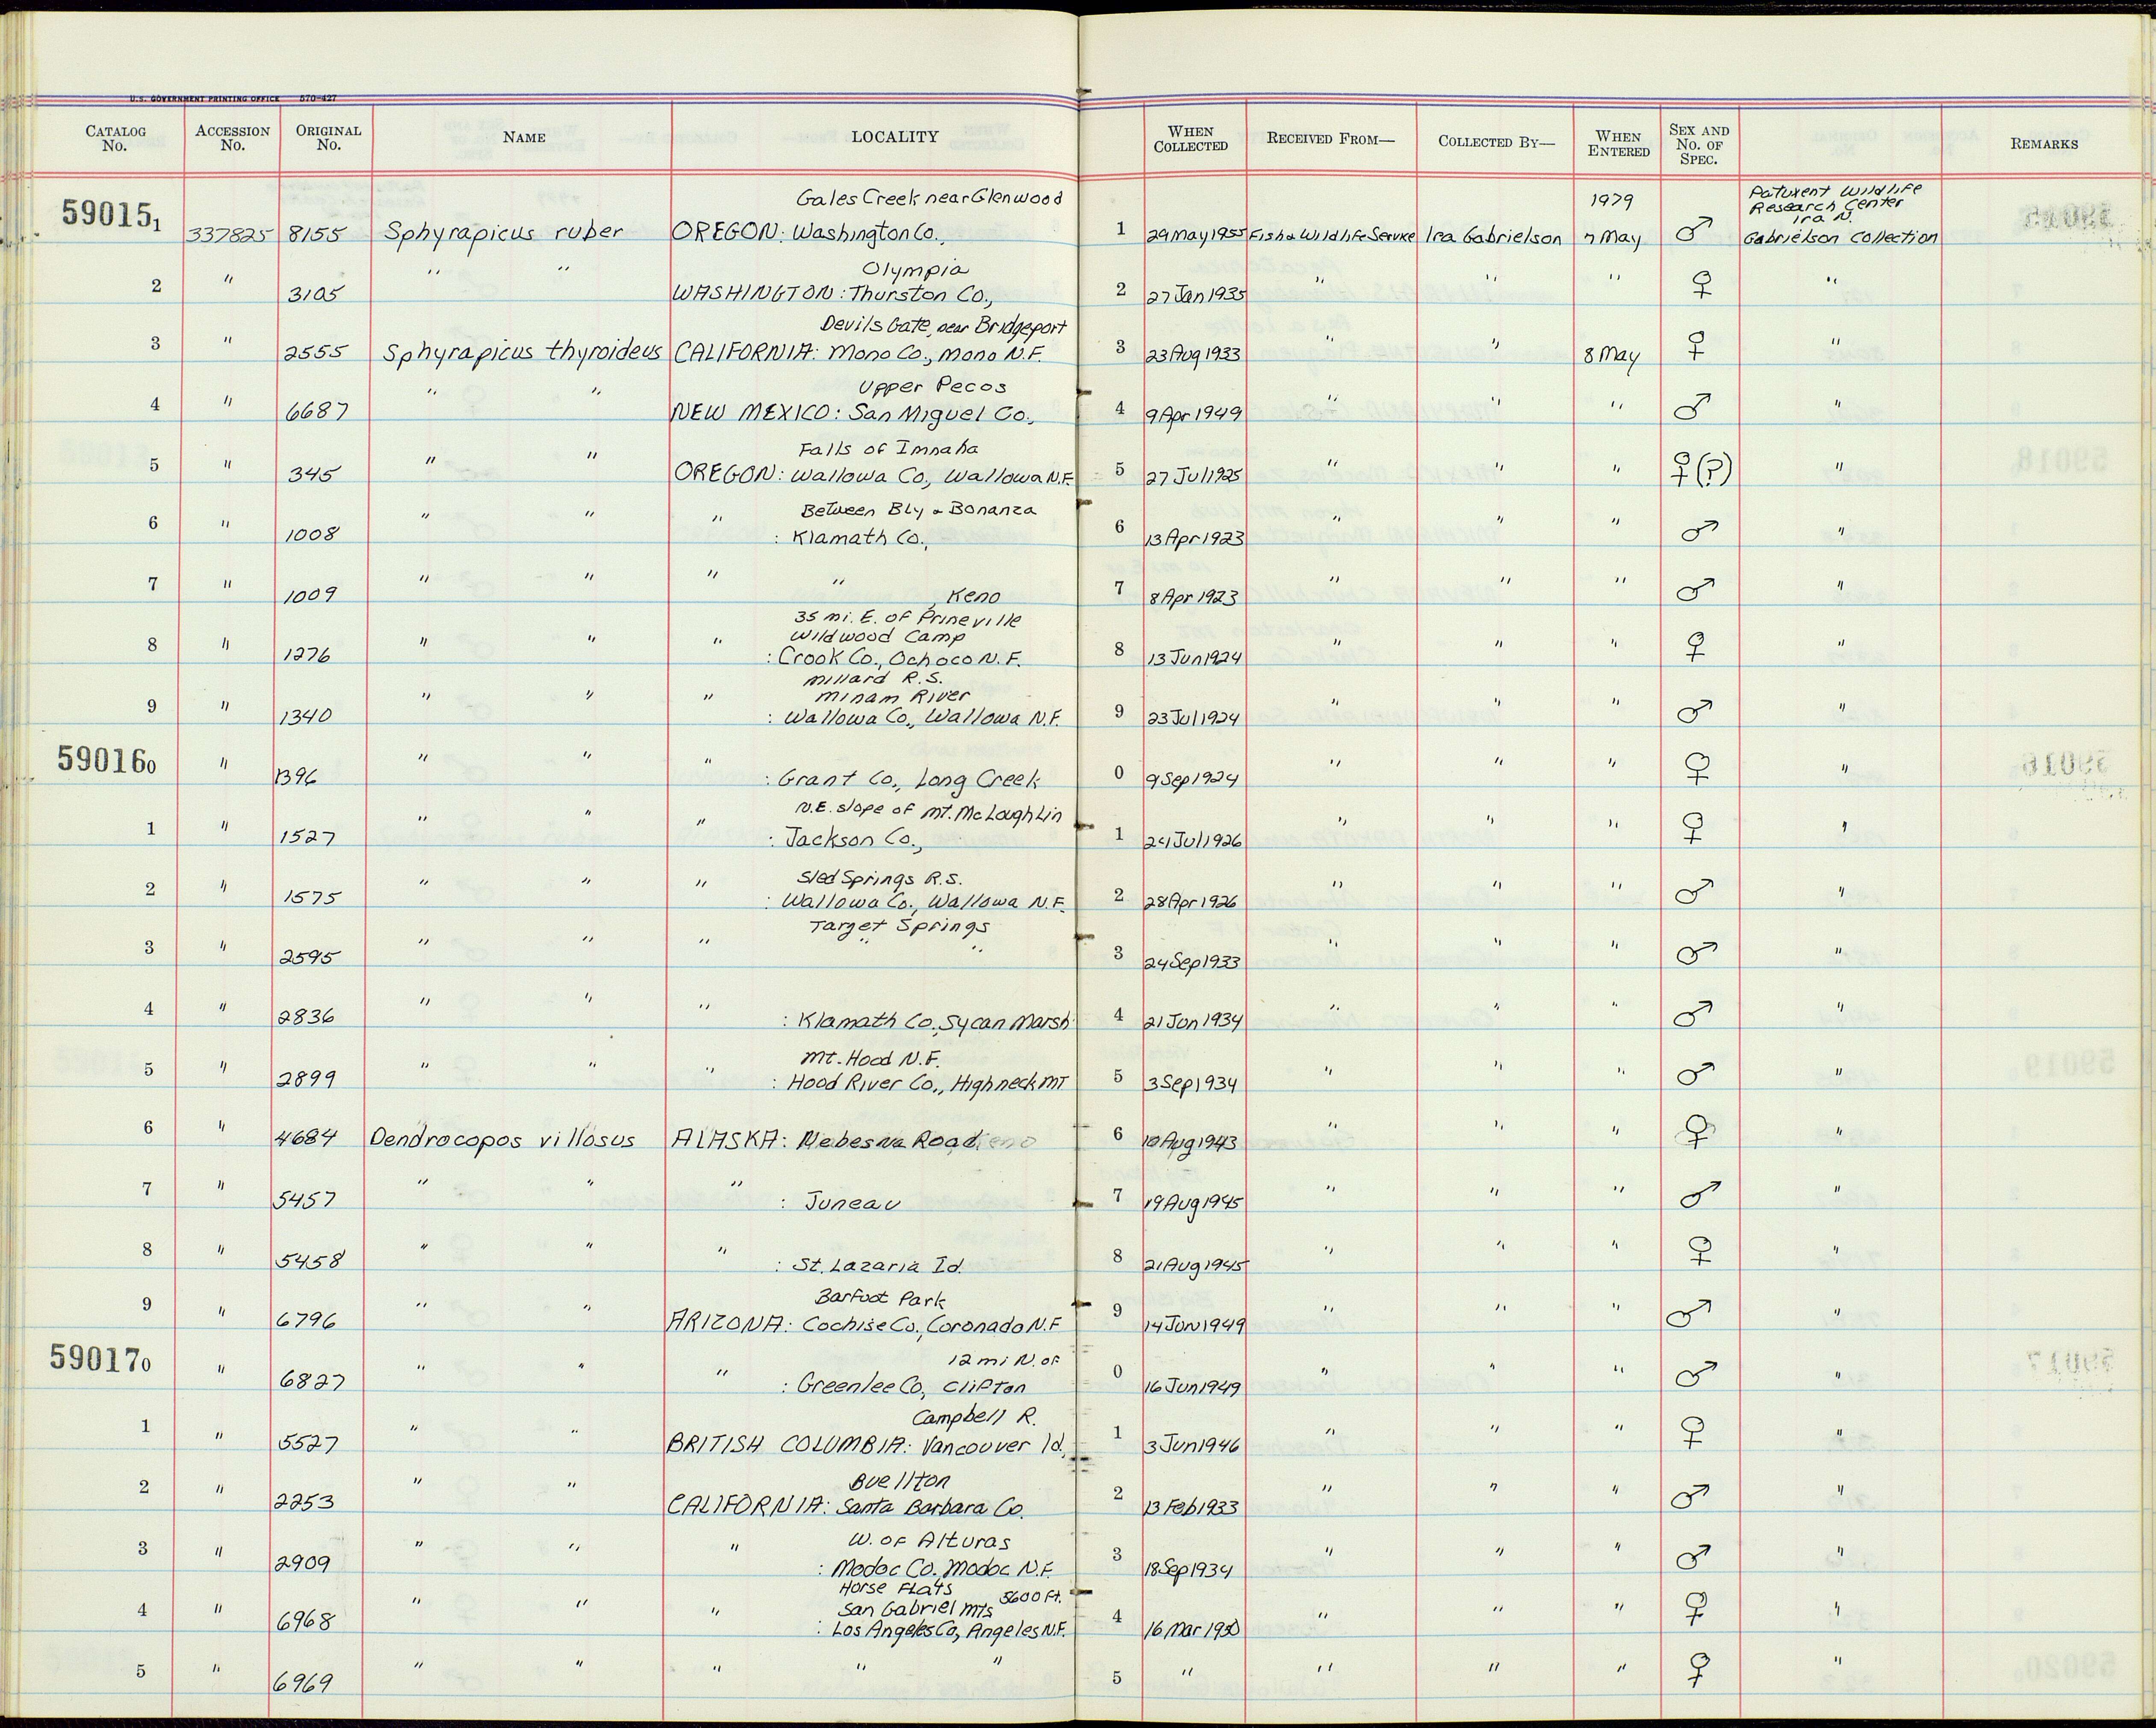 U.S. GOVERNMENT PRINTING OFFICE 570-427
CATALOG No. ACCESSION No. ORIGINAL No. NAME LOCALITY WHEN COLLECTED RECEIVED FROM— COLLECTED BY— WHEN ENTERED SEX AND No. OF SPEC. REMARKS
Gales Creek near Glenwood 1979 Patuxent Wildlife Research Center Ira N.
590151 337825 8155 Sphyrapicus ruber OREGON: Washington Co., 1 29 May 1955 Fish & Wildlife Service Ira Gabrielson 7 May ♂ Gabrielson Collection
Olympia
2 " 3105 " " WASHINGTON: Thurston Co., 2 27 Jan 1935 " " " ♀ "
Devils Gate, near Bridgeport
3 " 2555 Sphyrapicus thyroideus CALIFORNIA: Mono Co., Mono N.F. 3 23 Aug 1933 " " 8 May ♀ "
Upper Pecos
4 " 6687 " " NEW MEXICO: San Miguel Co., 4 9 Apr 1949 " " " ♂ "
Falls of Imnaha
5 " 345 " " OREGON: Wallowa Co., Wallowa N.F. 5 27 Jul 1925 " " " ♀(?) "
Between Bly & Bonanza
6 " 1008 " " " : Klamath Co., 6 13 Apr 1923 " " " ♂ "
7 " 1009 " " " " , Keno 7 8 Apr 1923 " " " ♂ "
35 mi. E. of Prineville
Wildwood Camp
8 " 1276 " " " : Crook Co., Ochoco N.F. 8 13 Jun 1924 " " " ♀ "
Millard R.S.
Minam River
9 " 1340 " " " : Wallowa Co., Wallowa N.F. 9 23 Jul 1924 " " " ♂ "
590160 " 1396 " " " : Grant Co., Long Creek 0 9 Sep 1924 " " " ♀ "
N.E. slope of Mt. McLoughlin
1 " 1527 " " " : Jackson Co., 1 24 Jul 1926 " " " ♀ "
Sled Springs R.S.
2 " 1575 " " " : Wallowa Co., Wallowa N.F. 2 28 Apr 1926 " " " ♂ "
Target Springs
3 " 2595 " " " " " 3 24 Sep 1933 " " " ♂ "
4 " 2836 " " " : Klamath Co., Sycan Marsh 4 21 Jun 1934 " " " ♂ "
Mt. Hood N.F.
5 " 2899 " " " : Hood River Co., Highneck Mt 5 3 Sep 1934 " " " ♂ "
6 " 4684 Dendrocopos villosus ALASKA: Nebesna Road 6 10 Aug 1943 " " " ♀ "
7 " 5457 " " " : Juneau 7 19 Aug 1945 " " " ♂ "
8 " 5458 " " " : St. Lazaria Id. 8 21 Aug 1945 " " " ♀ "
Barfoot Park
9 " 6796 " " ARIZONA: Cochise Co., Coronado N.F 9 14 Jun 1949 " " " ♂ "
12 mi N. of
590170 " 6827 " " " : Greenlee Co, Clifton 0 16 Jun 1949 " " " ♂ "
Campbell R.
1 " 5527 " " BRITISH COLUMBIA: Vancouver Id., 1 3 Jun 1946 " " " ♀ "
Buellton
2 " 2253 " " CALIFORNIA: Santa Barbara Co. 2 13 Feb 1933 " " " ♂ "
W. of Alturas
3 " 2909 " " " : Modoc Co. Modoc N.F. 3 18 Sep 1934 " " " ♂ "
Horse Flats 5600 Ft.
San Gabriel Mts
4 " 6968 " " " : Los Angeles Co, Angeles N.F. 4 16 Mar 1950 " " " ♀ "
5 " 6969 " " " " " 5 " " " " ♀ "